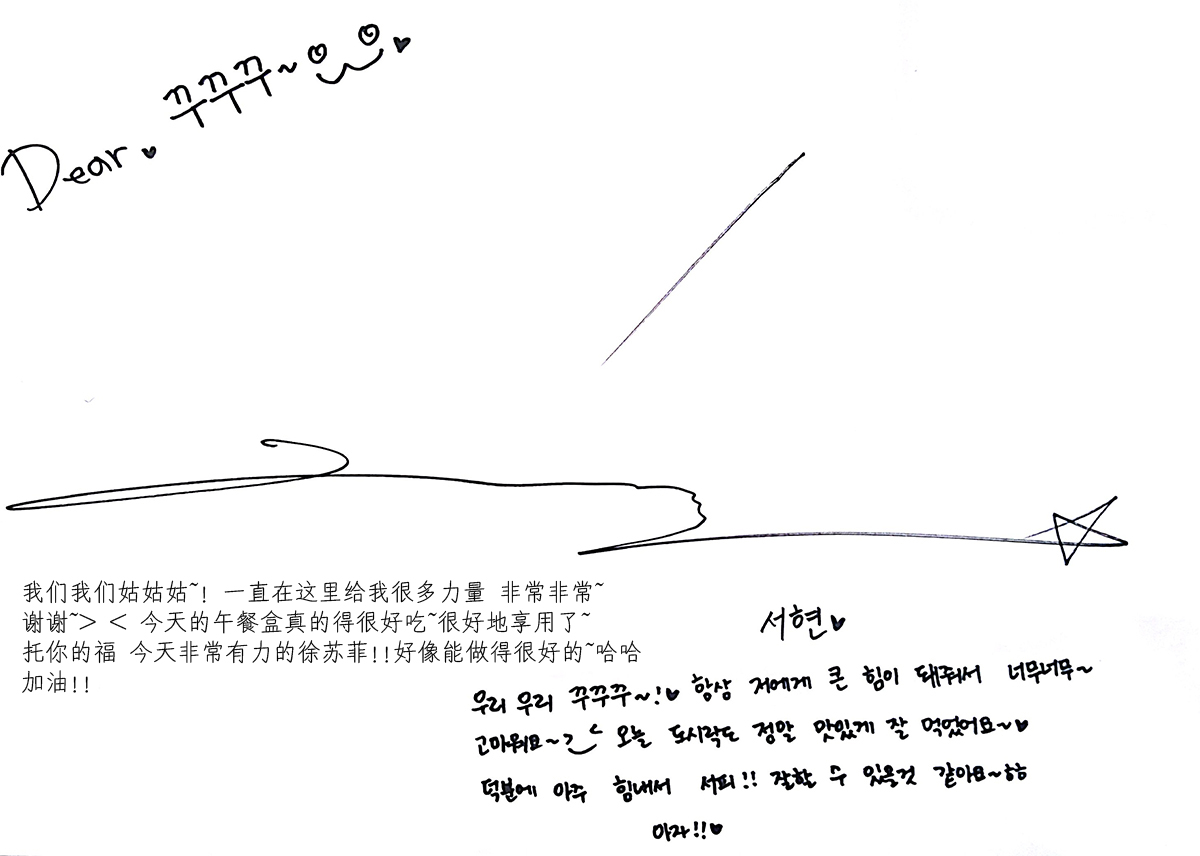 Dear♥ 뀨뀨뀨~♥
我们我们姑姑姑~! 一直在这里给我很多力量 非常非常~
谢谢~> < 今天的午餐盒真的得很好吃~很好地享用了~
托你的福 今天非常有力的徐苏菲!!好像能做得很好的~哈哈
加油!!
서현♥
우리 우리 뀨뀨뀨~!♥ 항상 저에게 큰 힘이 돼줘서 너무너무~
고마워요~ 오늘 도시락도 정말 맛있게 잘 먹었어요~♥
덕분에 아주 힘내서 서피!! 잘할 수 있을것 같아요~ㅎㅎ
아자!!♥